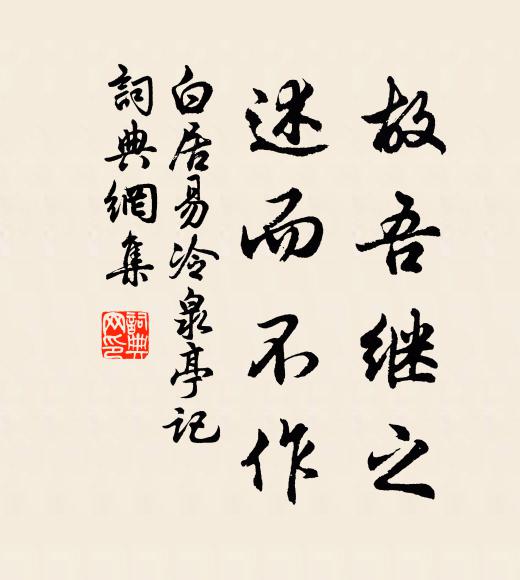 故吾继之
述而不作
白居易冷泉亭记
詞典網集
詞典
网印